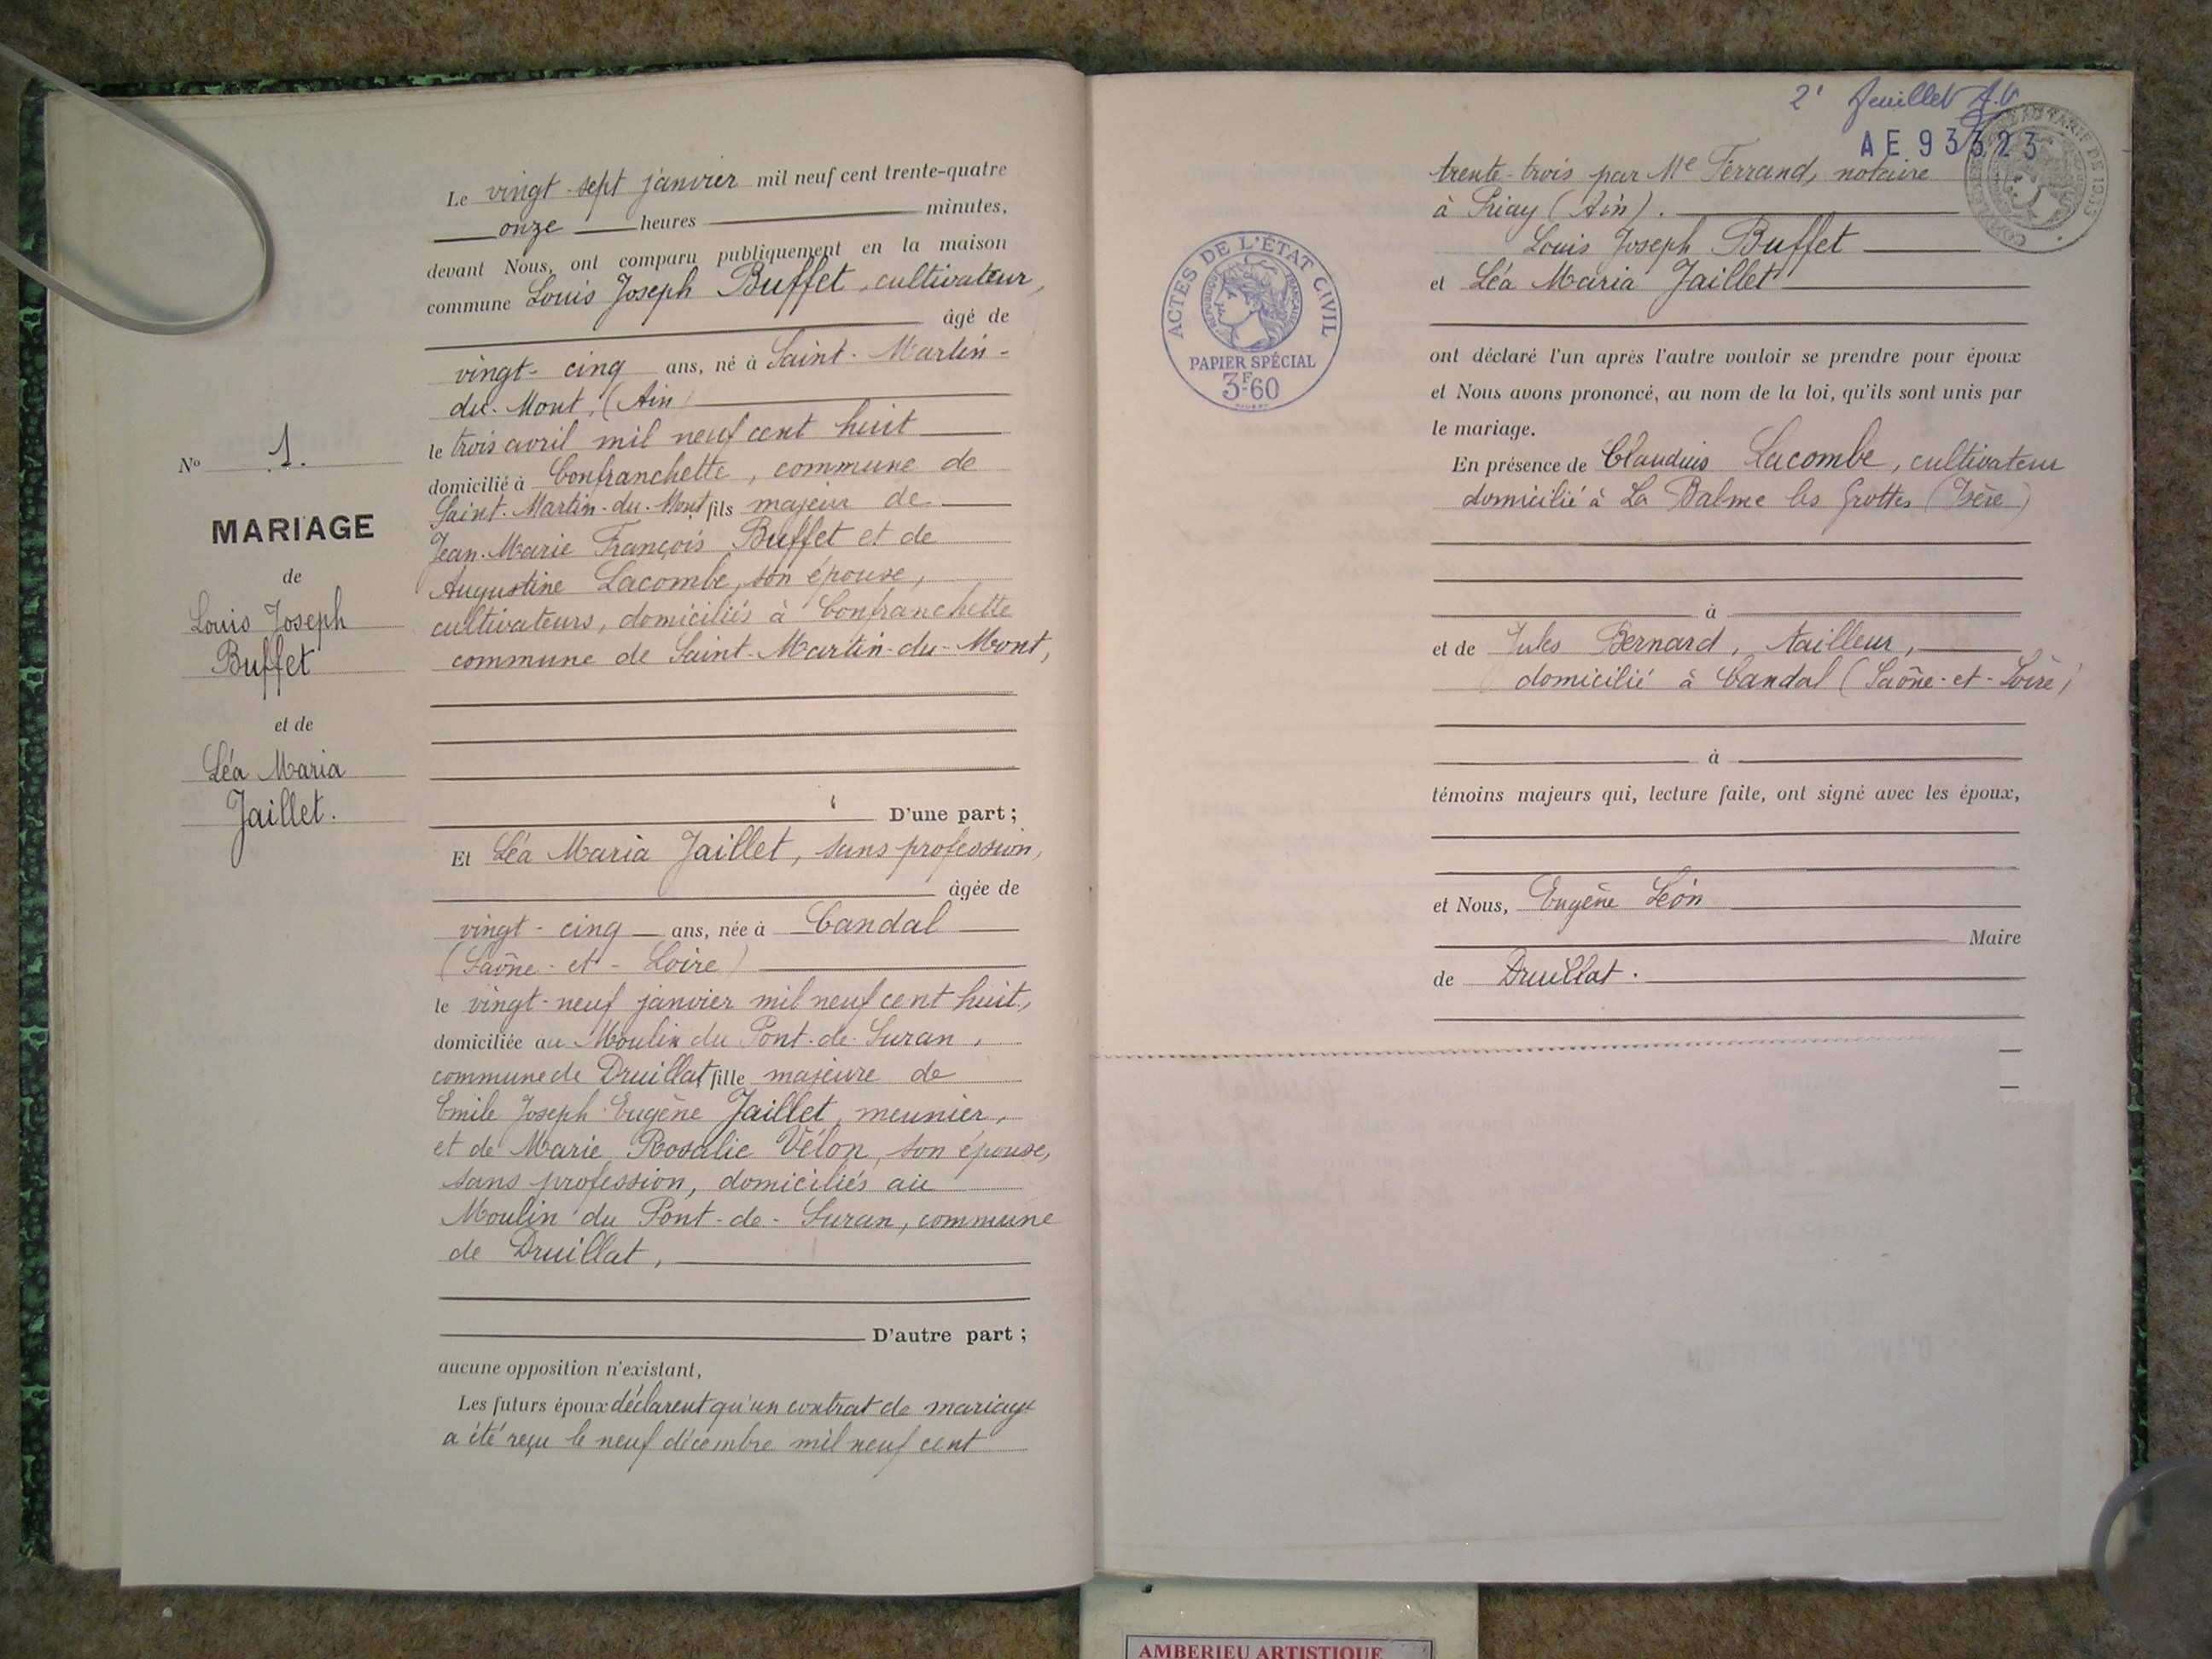 Le vingt-sept janvier mil neuf cent trente-quatre
onze heures minutes,
devant Nous, ont comparu publiquement en la maison
commune Louis Joseph Buffet, cultivateur,
âgé de
vingt-cinq ans, né à Saint-Martin-
du-Mont, (Ain)
le trois avril mil neuf cent huit
domicilié à Confranchette, commune de
Saint-Martin-du-Mont fils majeur de
Jean-Marie François Buffet et de
Augustine Lacombe, son épouse,
cultivateurs, domiciliés à Confranchette
commune de Saint-Martin-du-Mont,
D'une part ;
Et Léa Maria Jaillet, sans profession,
âgée de
vingt-cinq ans, née à Candal
(Saône-et-Loire)
le vingt-neuf janvier mil neuf cent huit,
domiciliée au Moulin du Pont-de-Suran,
commune de Druillat fille majeure de
Emile Joseph Eugène Jaillet, meunier,
et de Marie Rosalie Vélon, son épouse,
sans profession, domiciliés au
Moulin du Pont-de-Suran, commune
de Druillat,
D'autre part ;
aucune opposition n'existant,
Les futurs époux déclarent qu'un contrat de mariage
a été reçu le neuf décembre mil neuf cent
No 1.
MARIAGE
de
Louis Joseph
Buffet
et de
Léa Maria
Jaillet.
2e feuillet
AE 93323
trente-trois par Me Ferrand, notaire
à Priay (Ain).
Louis Joseph Buffet
et Léa Maria Jaillet
ont déclaré l'un après l'autre vouloir se prendre pour époux
et Nous avons prononcé, au nom de la loi, qu'ils sont unis par
le mariage.
En présence de Claudius Lacombe, cultivateur
domicilié à La Balme les Grottes (Isère)
à
et de Jules Bernard, tailleur,
domicilié à Candal (Saône-et-Loire)
à
témoins majeurs qui, lecture faite, ont signé avec les époux,
et Nous, Eugène Léon
Maire
de Druillat.
ACTES DE L'ÉTAT CIVIL
RÉPUBLIQUE FRANÇAISE
PAPIER SPÉCIAL
3F60
AMBERIEU ARTISTIQUE